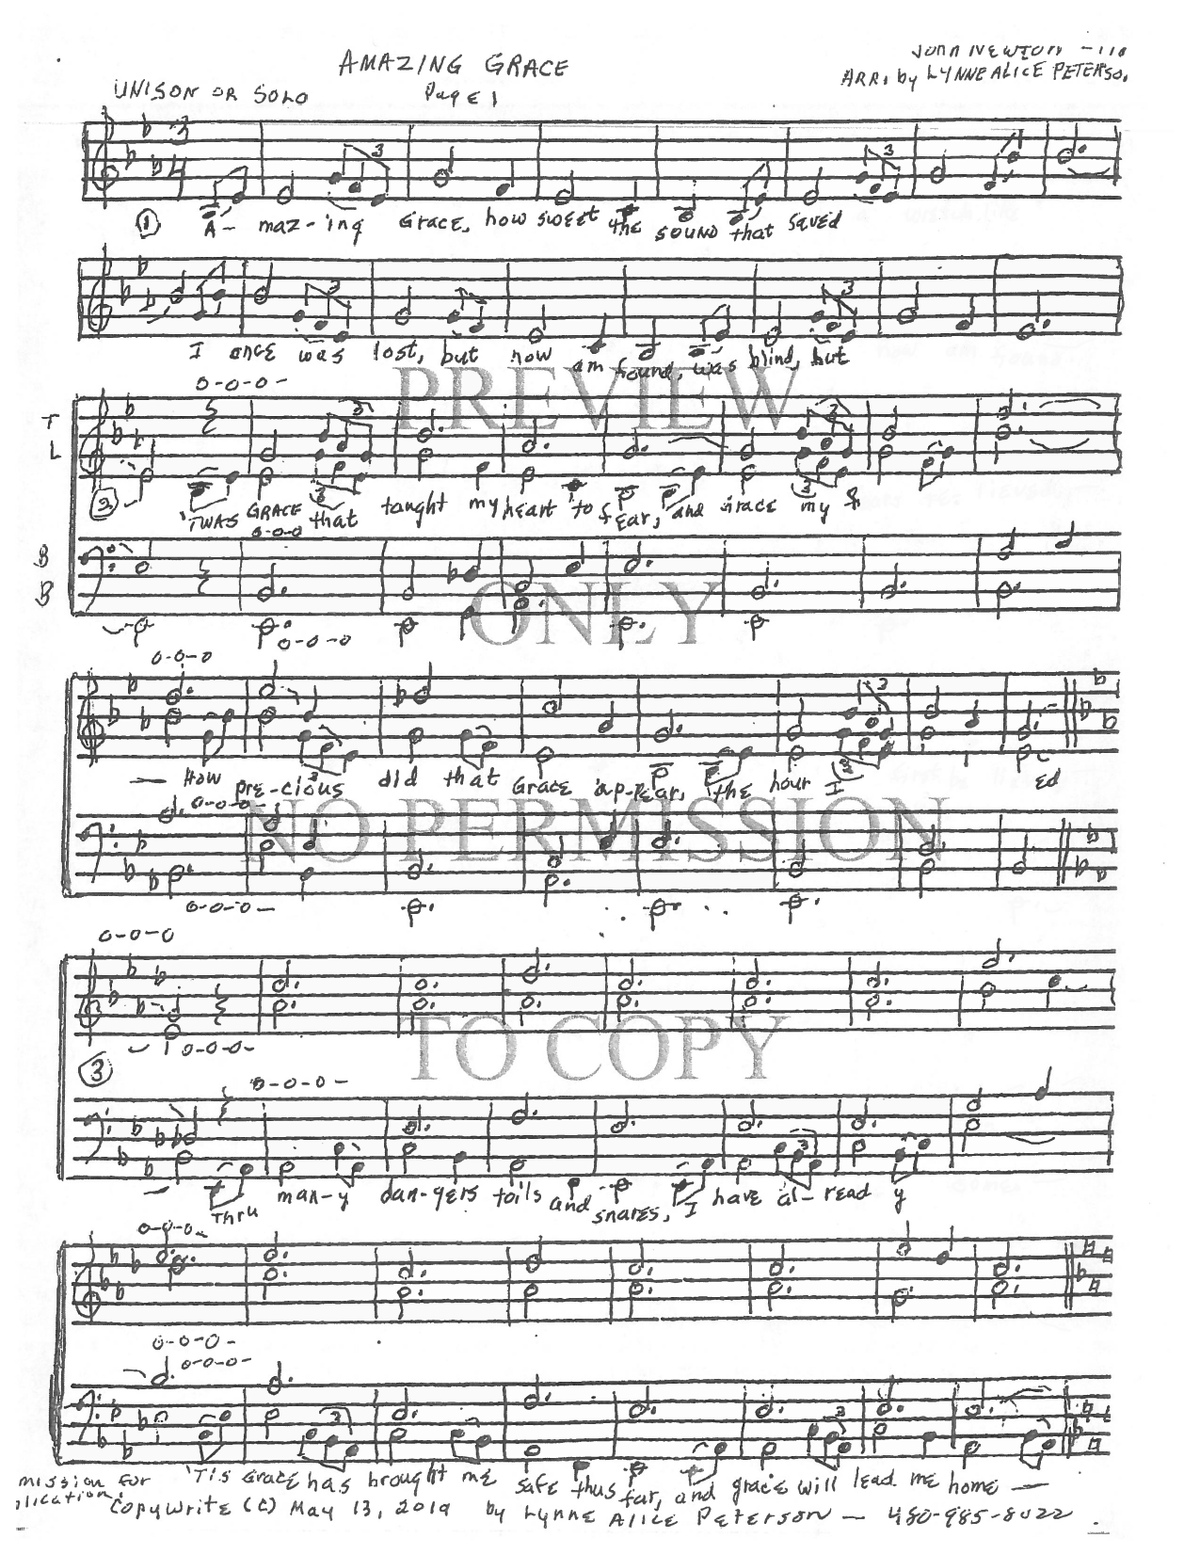 AMAZING GRACE
JOHN NEWTON
UNISON OR SOLO
Page 1
ARR. by LYNNE ALICE PETERSO
3
4
3
3
1
A- maz-ing Grace, how sweet the sound that saved
3
3
I once was lost, but now am found, was blind, but
PREVIEW
o-o-o-
T
L
3
3
2
'TWAS GRACE that taught my heart to fear, and Grace my f
3
3
o-o-o
B
B
ONLY
o-o-o
o-o-o
3
— How pre-cious did that Grace ap-pear, the hour I ed
3
3
o-o-o-
NO PERMISSION
o-o-o-
o-o-o
TO COPY
o-o-o-
3
o-o-o-
3
Thru man-y dan-gers toils and snares, I have al-read y
o-o-o-
o-o-o-
o-o-o-
3
3
'Tis Grace has brought me safe thus far, and grace will lead me home —
mission for
lication.
Copywrite (c) May 13, 2019 by Lynne Alice Peterson — 480-985-8022